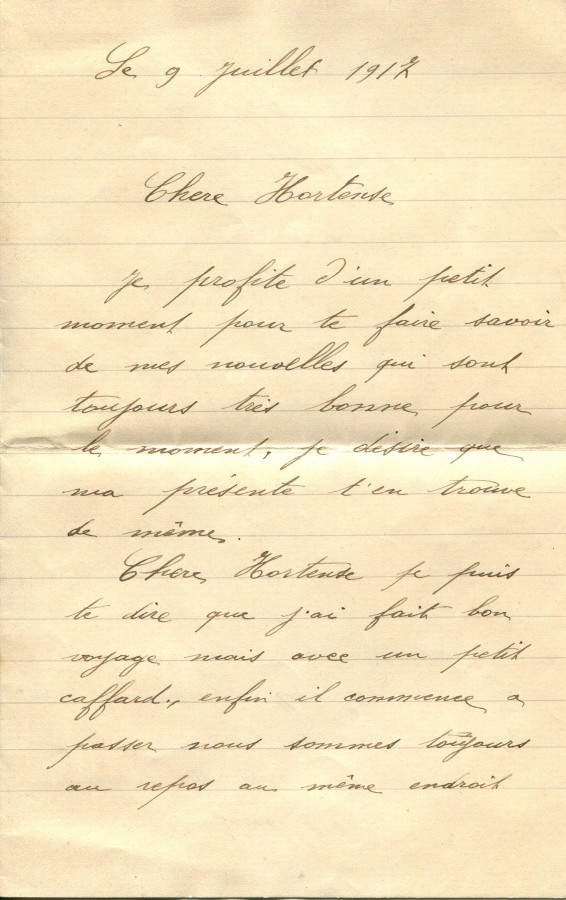 Le 9 Juillet 1917
Chere Hortense
Je profite d'un petit
moment pour te faire savoir
de mes nouvelles qui sont
toujours très bonne pour
le moment, je désire que
ma présente t'en trouve
de même.
Chere Hortense je puis
te dire que j'ai fait bon
voyage mais avec un petit
caffard, enfin il commence a
passer nous sommes toujours
au repos au même endroit